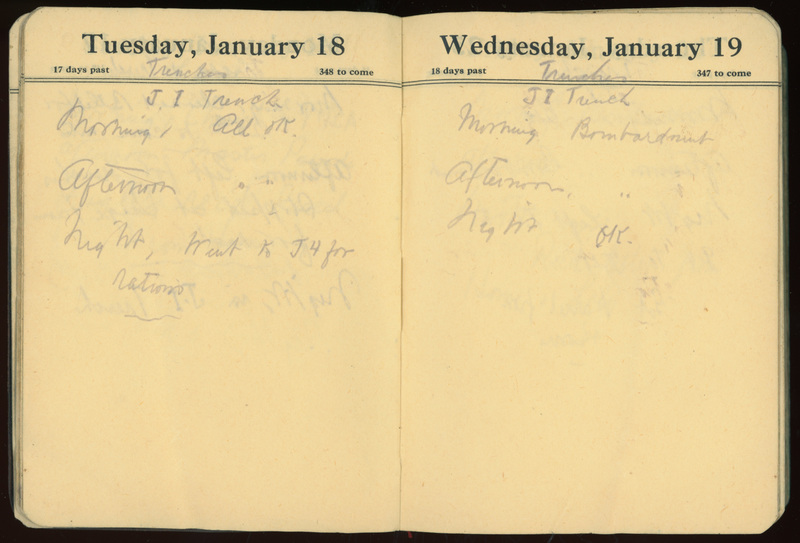 Tuesday, January 18
17 days past
Trenches
348 to come
J. I Trench
Morning, All OK.
Afternoon " "
Night, Went to J 4 for
rations
Wednesday, January 19
18 days past
Trenches
347 to come
J I Trench
Morning Bombardment
Afternoon, "
Night OK.